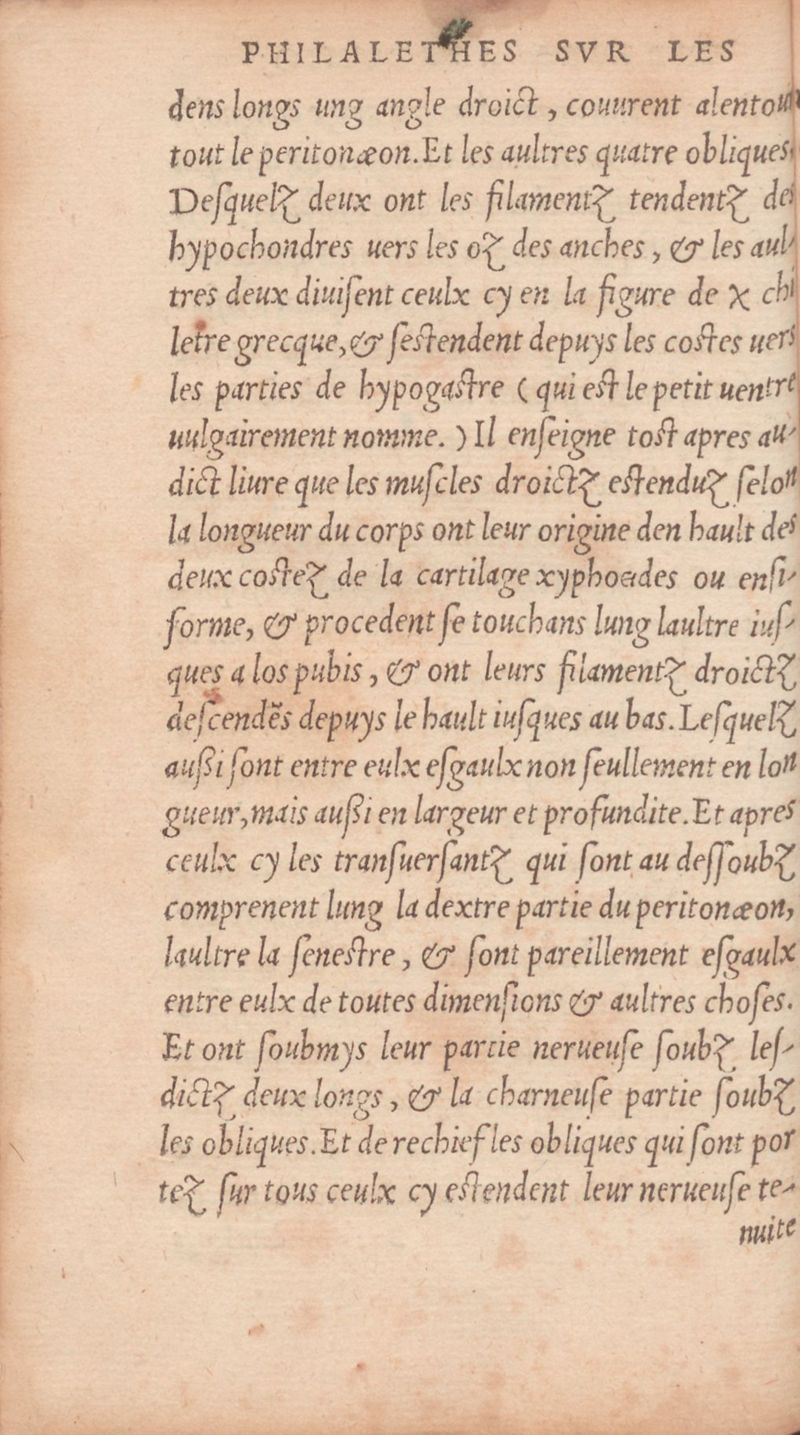 PHILALETHES SVR LES
dens longs ung angle droict, couurent alentour
tout le peritonæon. Et les aultres quatre obliques.
Deſquelz deux ont les filamentz tendentz des
hypochondres uers les oz des anches, & les aul-
tres deux diuiſent ceulx cy en la figure de χ chi
letre grecque, & ſeſtendent depuys les coſtes uers
les parties de hypogaſtre (qui eſt le petit uentre
uulgairement nomme.) Il enſeigne toſt apres au-
dict liure que les muſcles droictz eſtenduz ſelon
la longueur du corps ont leur origine den hault des
deux coſtez de la cartilage xyphoędes ou enſi-
forme, & procedent ſe touchans lung laultre iuſ-
ques a los pubis, & ont leurs filamentz droictz
deſcendēs depuys le hault iuſques au bas. Leſquelz
auſſi ſont entre eulx eſgaulx non ſeullement en lon
gueur, mais auſſi en largeur et profundite. Et apres
ceulx cy les tranſuerſantz qui ſont au deſſoubz
comprenent lung la dextre partie du peritonæon,
laultre la ſeneſtre, & ſont pareillement eſgaulx
entre eulx de toutes dimenſions & aultres choſes.
Et ont ſoubmys leur partie nerueuſe ſoubz leſ-
dictz deux longs, & la charneuſe partie ſoubz
les obliques. Et de rechief les obliques qui ſont por
tez ſur tous ceulx cy eſtendent leur nerueuſe te-
nuite